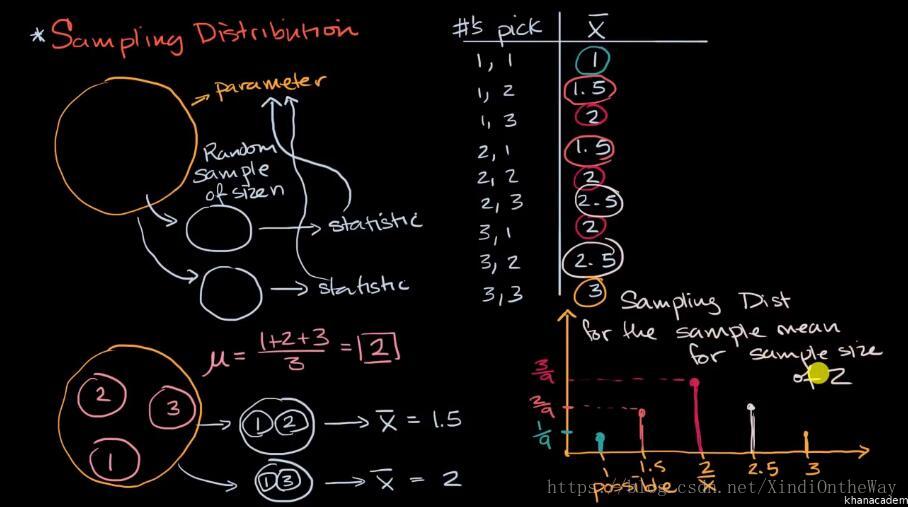 * Sampling Distribution
parameter
Random
sample
of size n
statistic
statistic
μ = 1+2+3 / 3 = 2
2
3
1
1 2 → x̄ = 1.5
1 3 → x̄ = 2
#'s pick x̄
1, 1 1
1, 2 1.5
1, 3 2
2, 1 1.5
2, 2 2
2, 3 2.5
3, 1 2
3, 2 2.5
3, 3 3
Sampling Dist
for the sample mean
for sample size
of 2
3/9
2/9
1/9
1 1.5 2 2.5 3
possible x̄
https://blog.csdn.net/XindiOntheWay
khanacadem